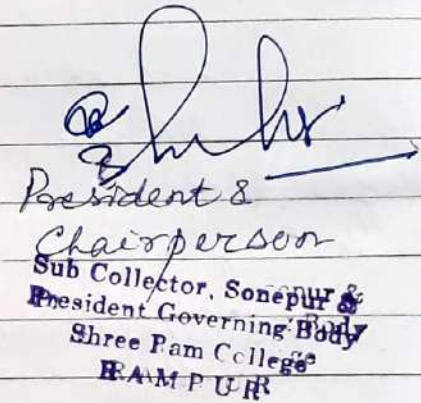 President &
Chairperson
Sub Collector, Sonepur &
President Governing Body
Shree Ram College
RAMPUR